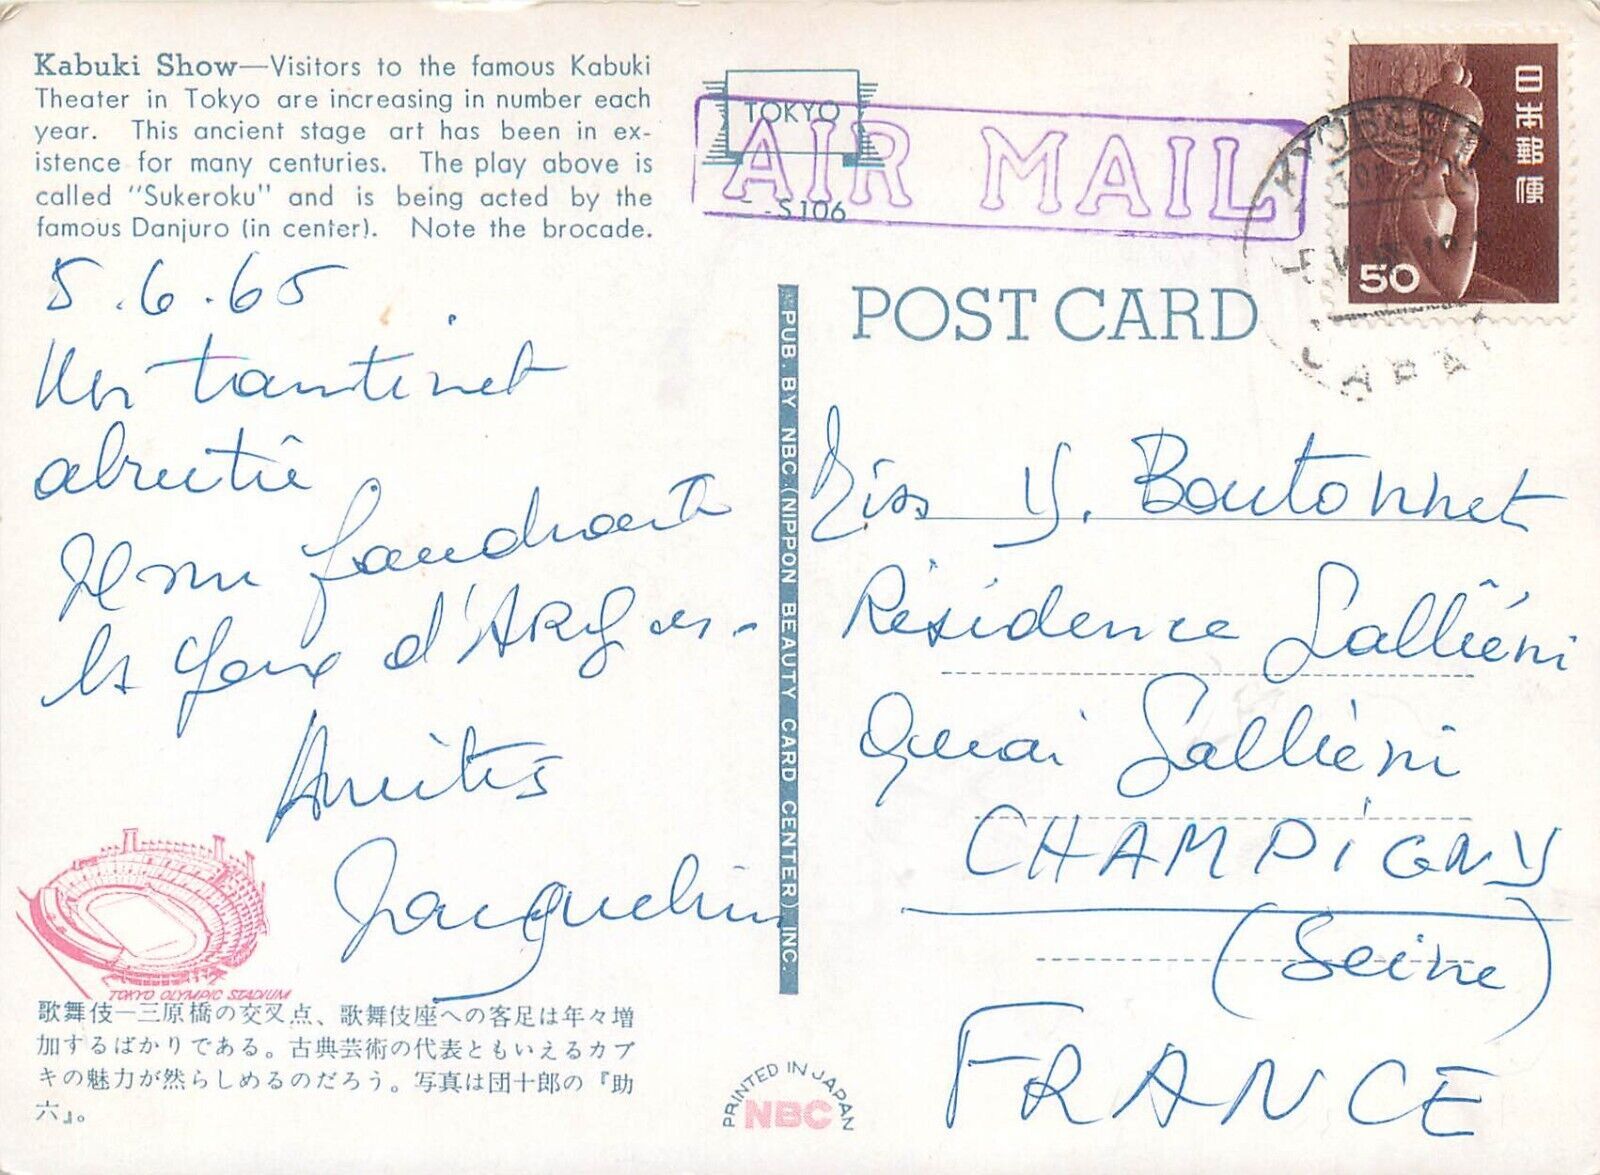 Kabuki Show—Visitors to the famous Kabuki
Theater in Tokyo are increasing in number each
year. This ancient stage art has been in ex-
istence for many centuries. The play above is
called "Sukeroku" and is being acted by the
famous Danjuro (in center). Note the brocade.
5.6.65
tantinet
abrutie
Il me faudrait
les yeux d'ARgus.
Amitiés
Jacqueline
TOKYO OLYMPIC STADIUM
歌舞伎―三原橋の交叉点、歌舞伎座への客足は年々増
加するばかりである。古典芸術の代表ともいえるカブ
キの魅力が然らしめるのだろう。写真は団十郎の『助
六』。
PUB. BY NBC (NIPPON BEAUTY CARD CENTER) INC.
TOKYO
AIR MAIL
S106
POST CARD
日本郵便
50
JAPAN
Miss Y. Boutonnet
Résidence Galliéni
Quai Galliéni
CHAMPIGNY
(Seine)
FRANCE
PRINTED IN JAPAN
NBC